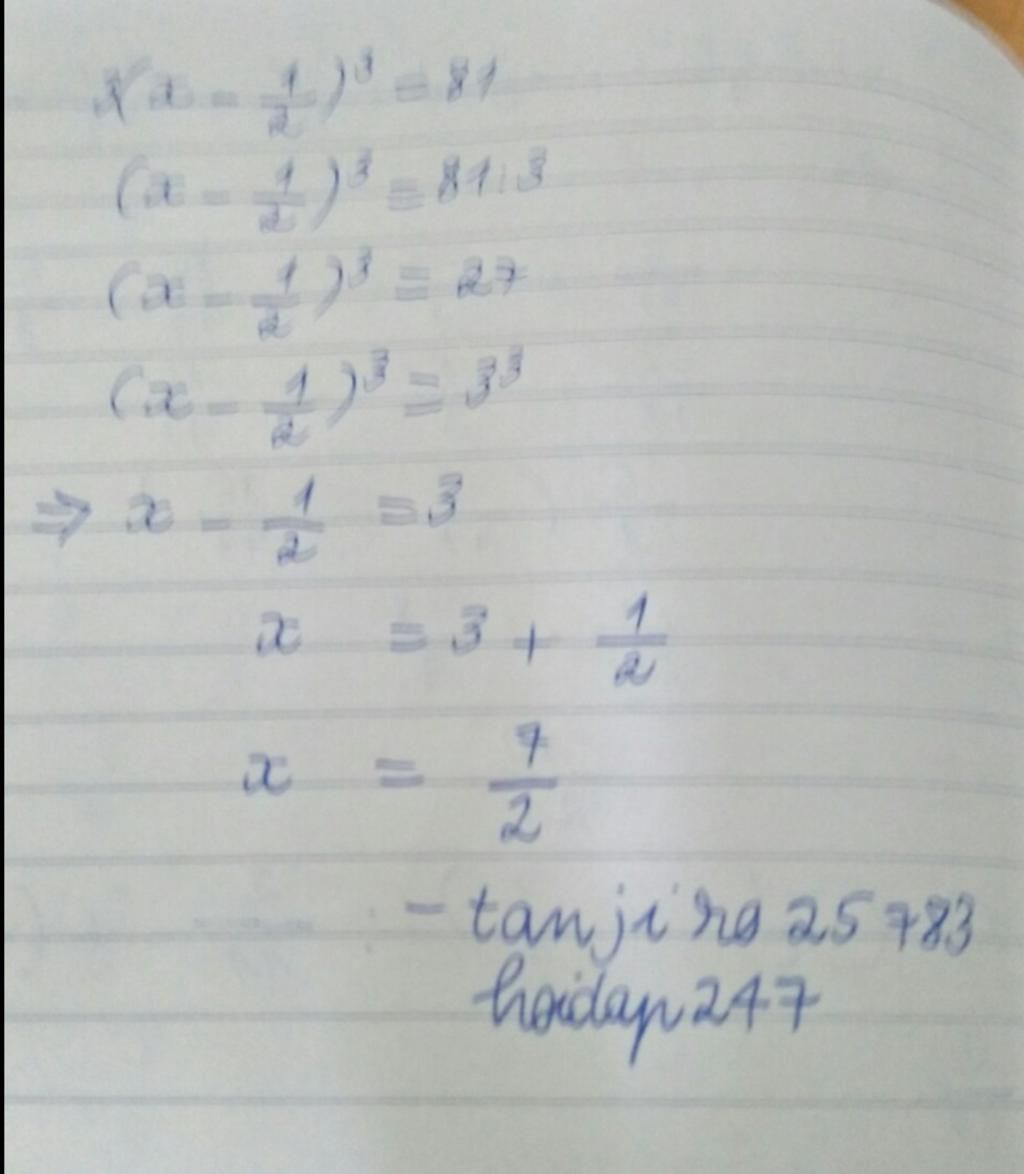 3(x - 1/2)³ = 81
(x - 1/2)³ = 81:3
(x - 1/2)³ = 27
(x - 1/2)³ = 3³
⇒ x - 1/2 = 3
x = 3 + 1/2
x = 7/2
- tanjiro 25783
hoidap247